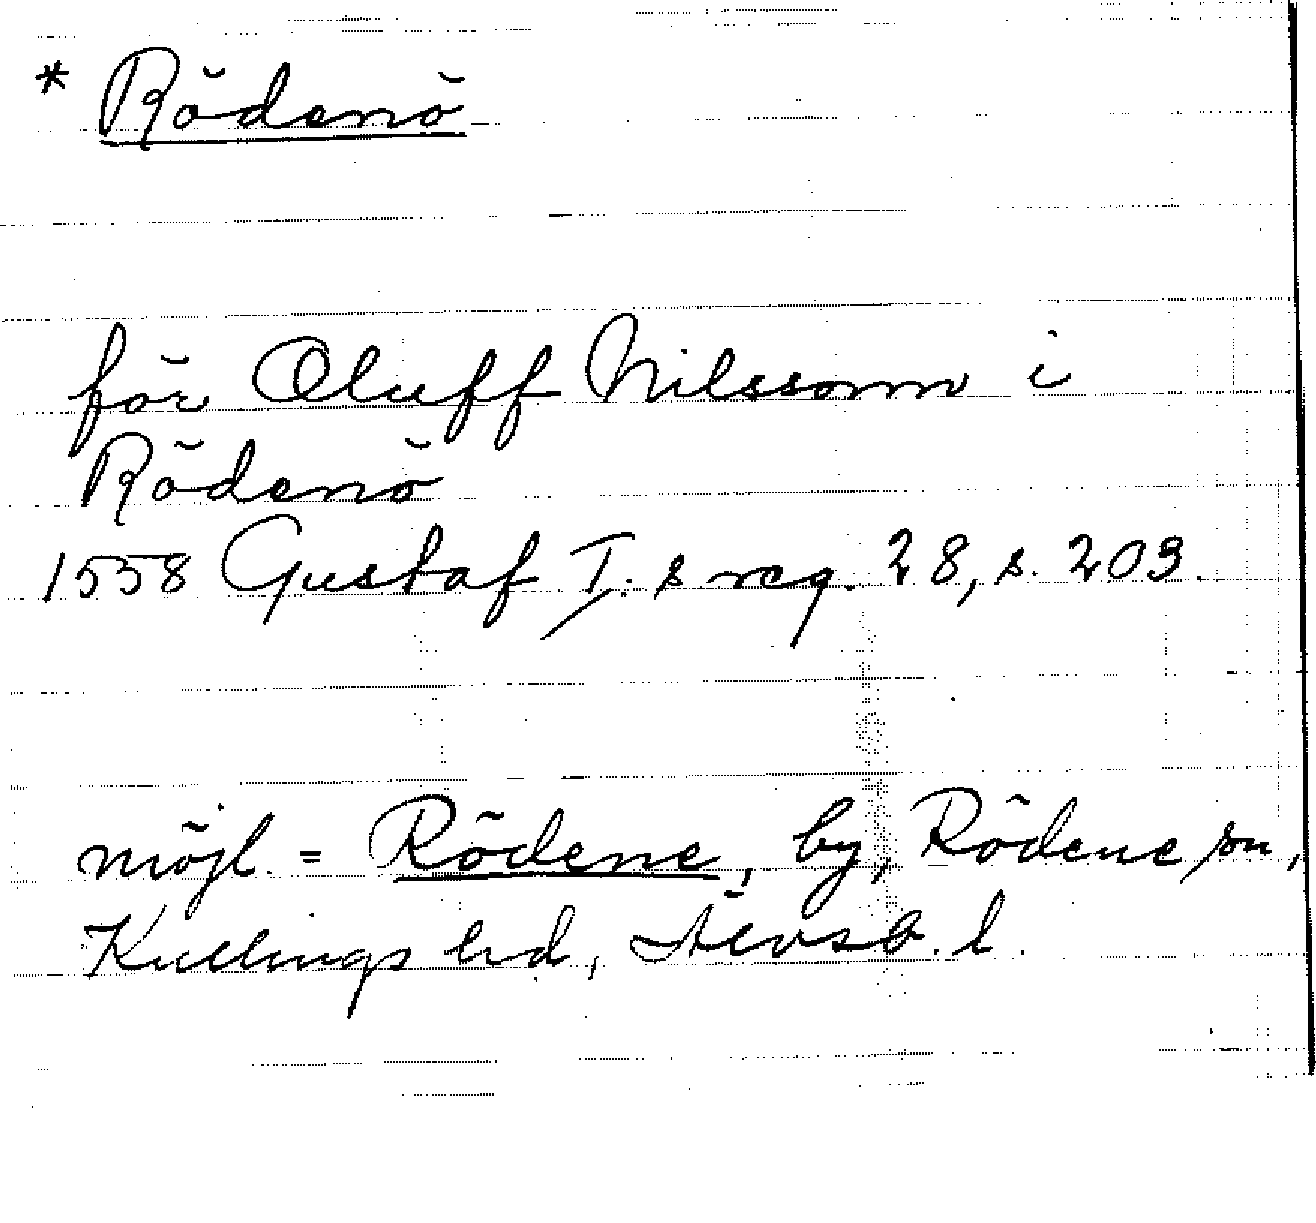 * Rödenö
för Oluff Nilssonn i
Rödenö
1558 Gustaf I. s reg. 28, s. 203.
möjl. = Rödene, by, Rödene sn,
Kullings hd, Älvsb. l.